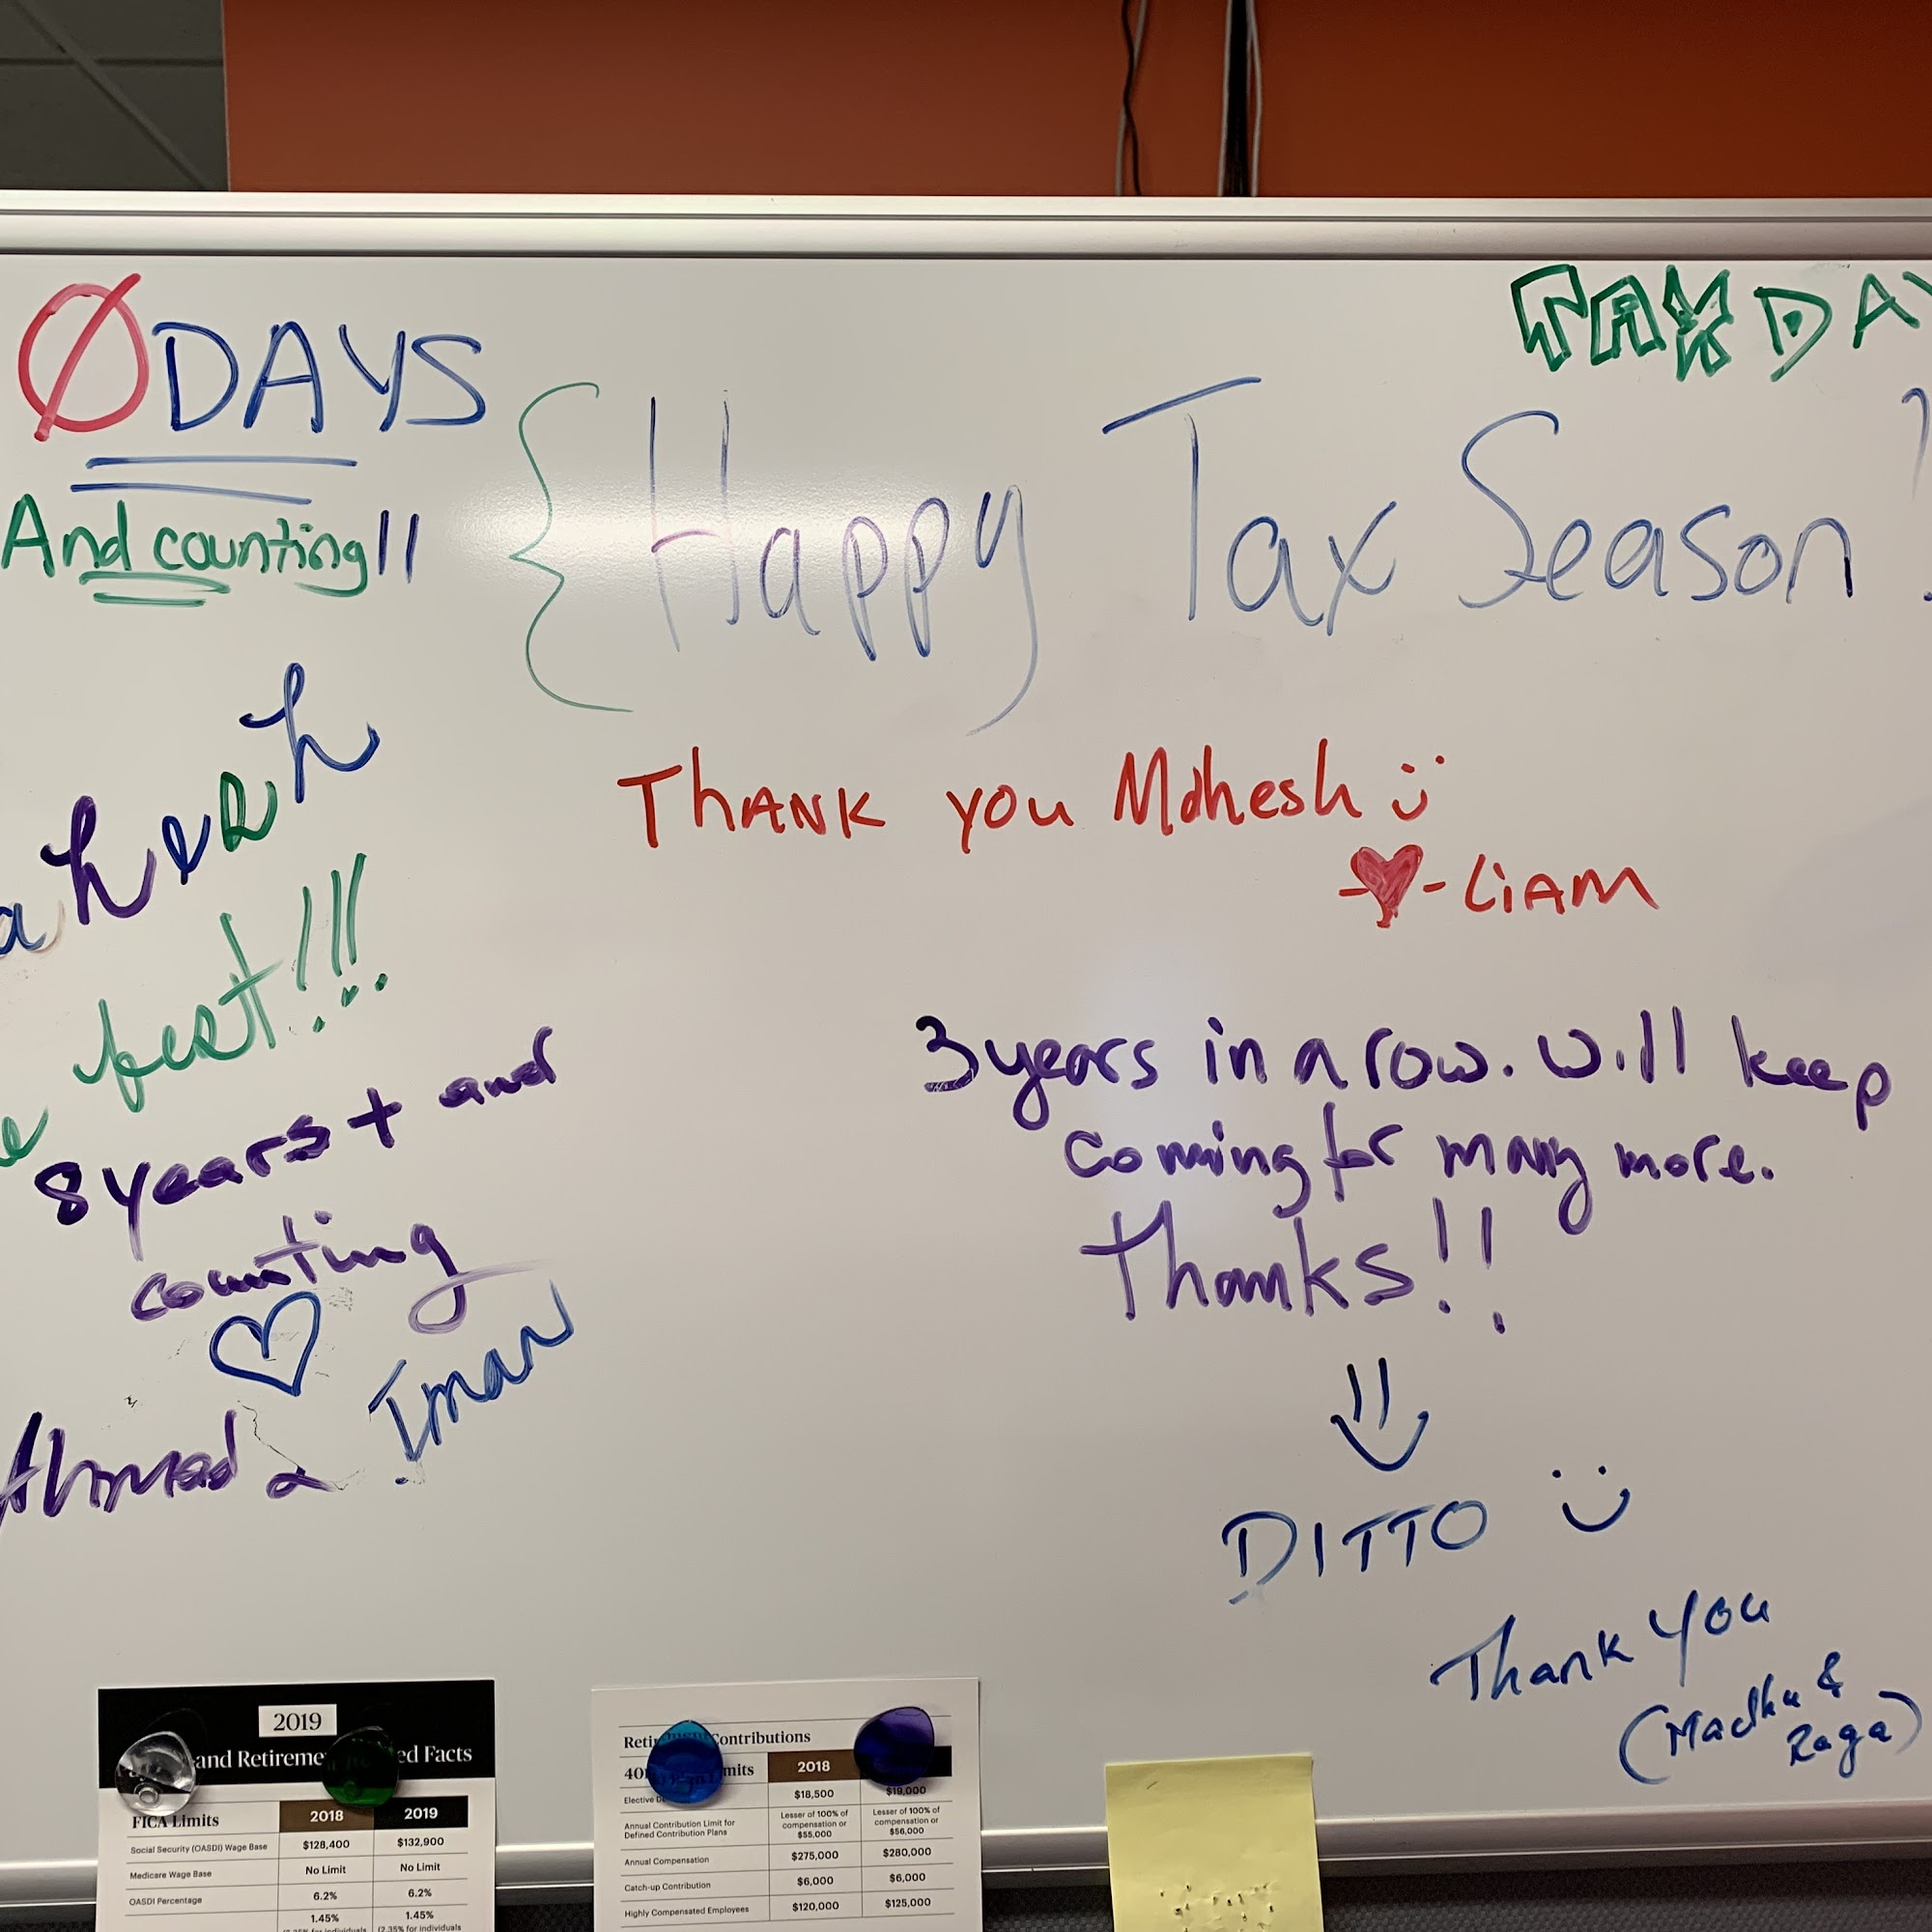 ØDAYS
And counting!!
TAX DAY
Happy Tax Season!
ahesh
best!!!
8 years + and
counting
Ahmad & Iman
THANK you Mahesh
- LiAM
3 years in a row. Will keep
coming for many more.
Thanks!!
DITTO
Thank You
(Madhu &
Raga)
2019
and Retirement Facts
FICA Limits 2018 2019
Social Security (OASDI) Wage Base $128,400 $132,900
Medicare Wage Base No Limit No Limit
OASDI Percentage 6.2% 6.2%
1.45% 1.45%
(2.35% for individuals (2.35% for individuals
Retirement Contributions
Limits 2018
Elective $18,500 $19,000
Annual Contribution Limit for
Defined Contribution Plans
Lesser of 100% of
compensation or
$55,000
Lesser of 100% of
compensation or
$56,000
Annual Compensation $275,000 $280,000
Catch-up Contribution $6,000 $6,000
Highly Compensated Employees $120,000 $125,000